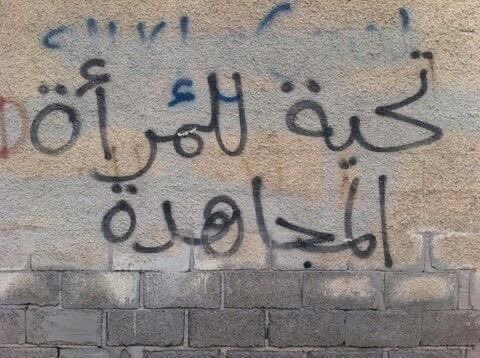 تحية للمرأة
المجاهدة